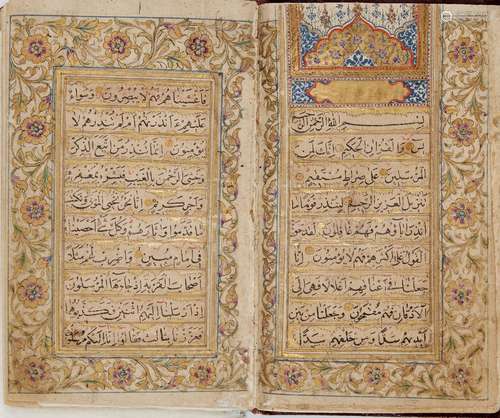 بسم الله الرحمن الرحيم
يس والقرآن الحكيم إنك لمن
المرسلين على صراط مستقيم
تنزيل العزيز الرحيم لتنذر قوما ما
أنذر آباؤهم فهم غافلون لقد حق
القول على أكثرهم فهم لا يؤمنون إنا
جعلنا في أعناقهم أغلالا فهي إلى
الأذقان فهم مقمحون وجعلنا من بين
أيديهم سدا ومن خلفهم سدا
فأغشيناهم فهم لا يبصرون وسواء
عليهم ءأنذرتهم أم لم تنذرهم لا
يؤمنون إنما تنذر من اتبع الذكر
وخشي الرحمن بالغيب فبشره بمغفرة
وأجر كريم إنا نحن نحي الموتى ونكتب
ما قدموا وآثارهم وكل شيء أحصيناه
في إمام مبين واضرب لهم مثلا
أصحاب القرية إذ جاءها المرسلون
إذ أرسلنا إليهم اثنين فكذبوهما
فعززنا بثالث فقالوا إنا إليكم